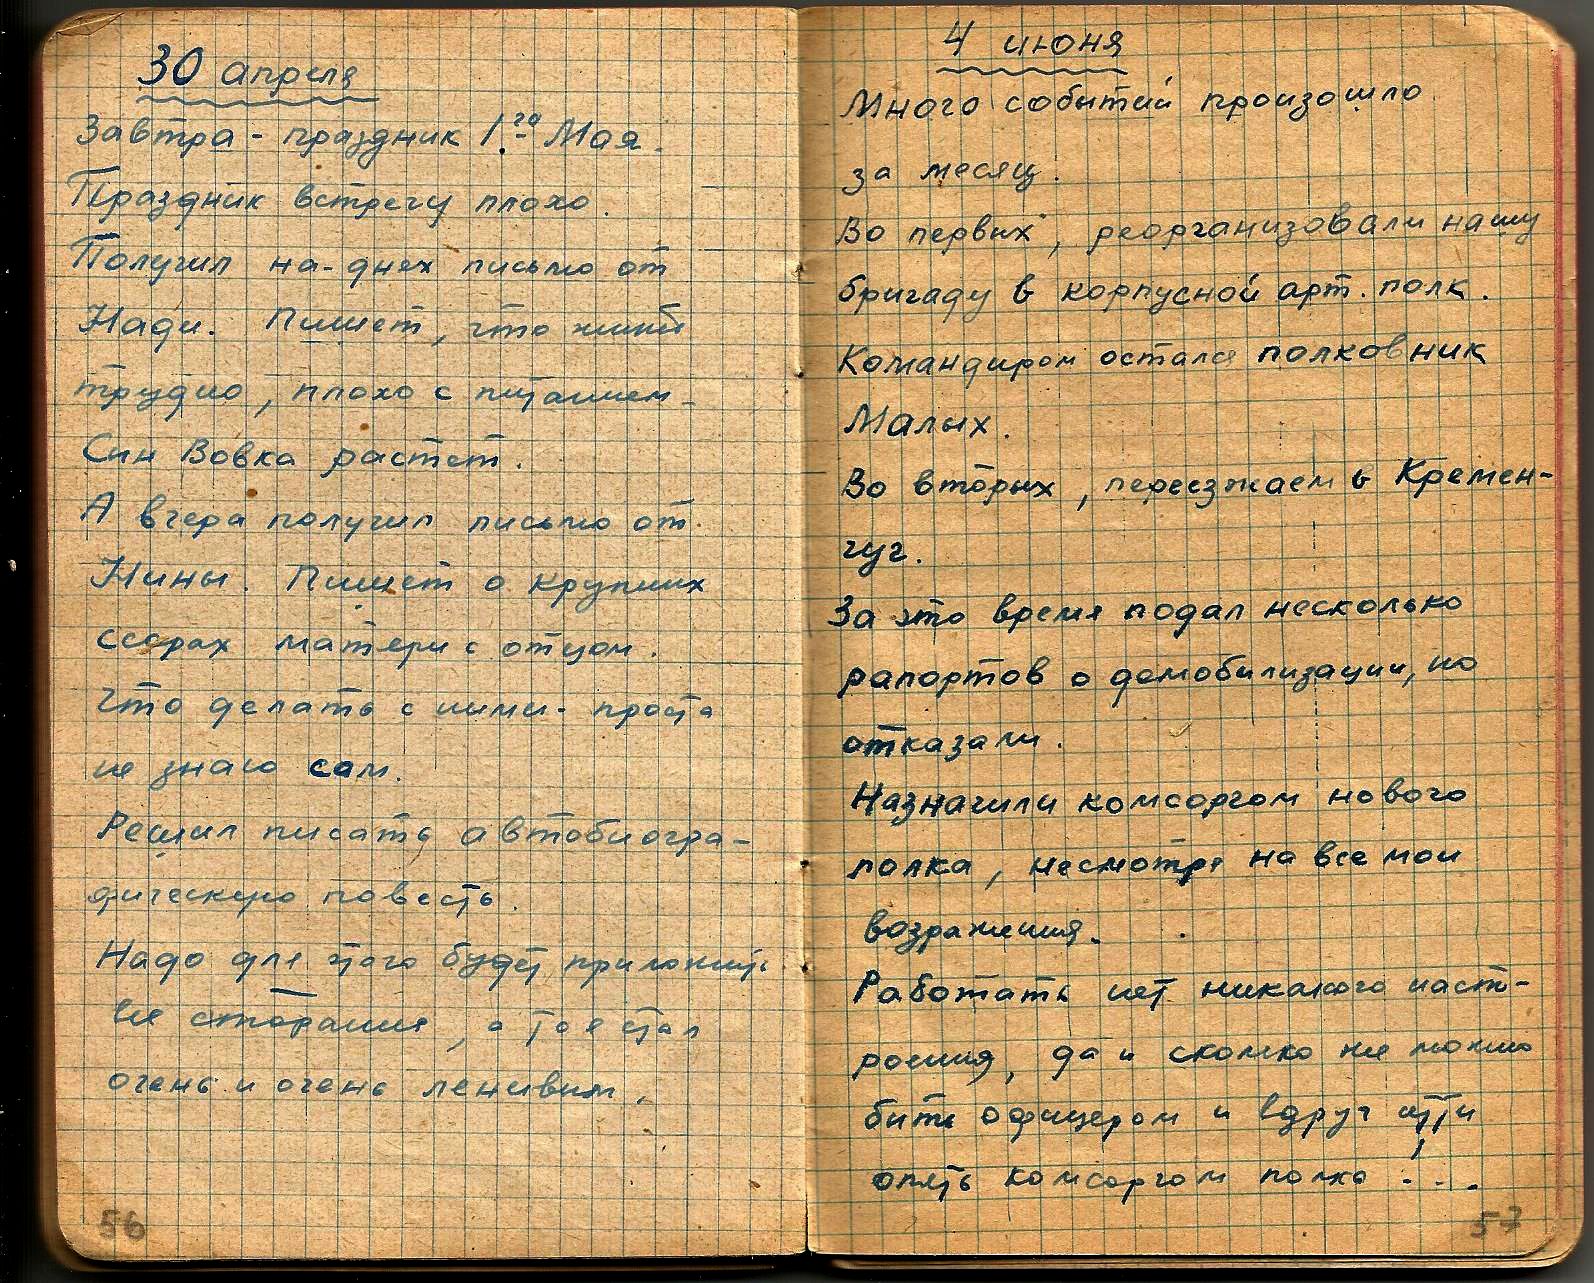 30 апреля
Завтра - праздник 1.го Мая.
Праздник встречу плохо.
Получил на-днех письмо от
Нади. Пишет, что жить
трудно, плохо с питанием.
Син Вовка растет.
А вчера получил письмо от
Нины. Пишет о крупних
ссорах матери с отцом.
Что делать с ними - просто
не знаю сам.
Решил писать автобиогра-
фическую повесть.
Надо для этого будет приложить
старания, а я стал
очень и очень ленивим.
56
4 июня
Много событий произошло
за месяц.
Во первых, реорганизовали нашу
бригаду в корпусной арт. полк.
Командиром остался полковник
Малых.
Во вторых, переезжаем в Кремен-
чуг.
За это время подал несколько
рапортов о демобилизации, но
отказали.
Назначили комсоргом нового
полка, несмотря на все мои
возражения.
Работать нет никакого наст-
роения, да и сколько же можно
бить офицером и вдруг итти
опять комсоргом полка ...
57